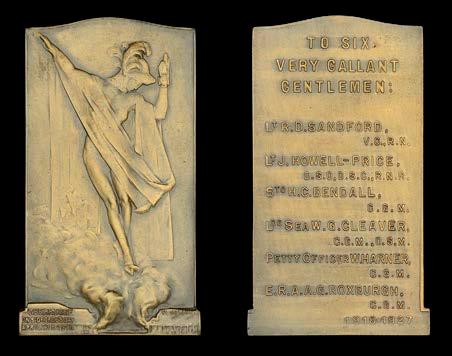 TO SIX
VERY GALLANT
GENTLEMEN:
LT R.D. SANDFORD,
V.C., R.N.
LT J. HOWELL-PRICE,
D.S.O., D.S.C., R.N.R.
STO H.C. BENDALL,
C.G.M.
LDG SEA W.G. CLEAVER,
C.G.M., D.S.M.
PETTY OFFICER W. HARNER,
C.G.M.
E.R.A. A.G. ROXBURGH,
C.G.M.
1918-1927